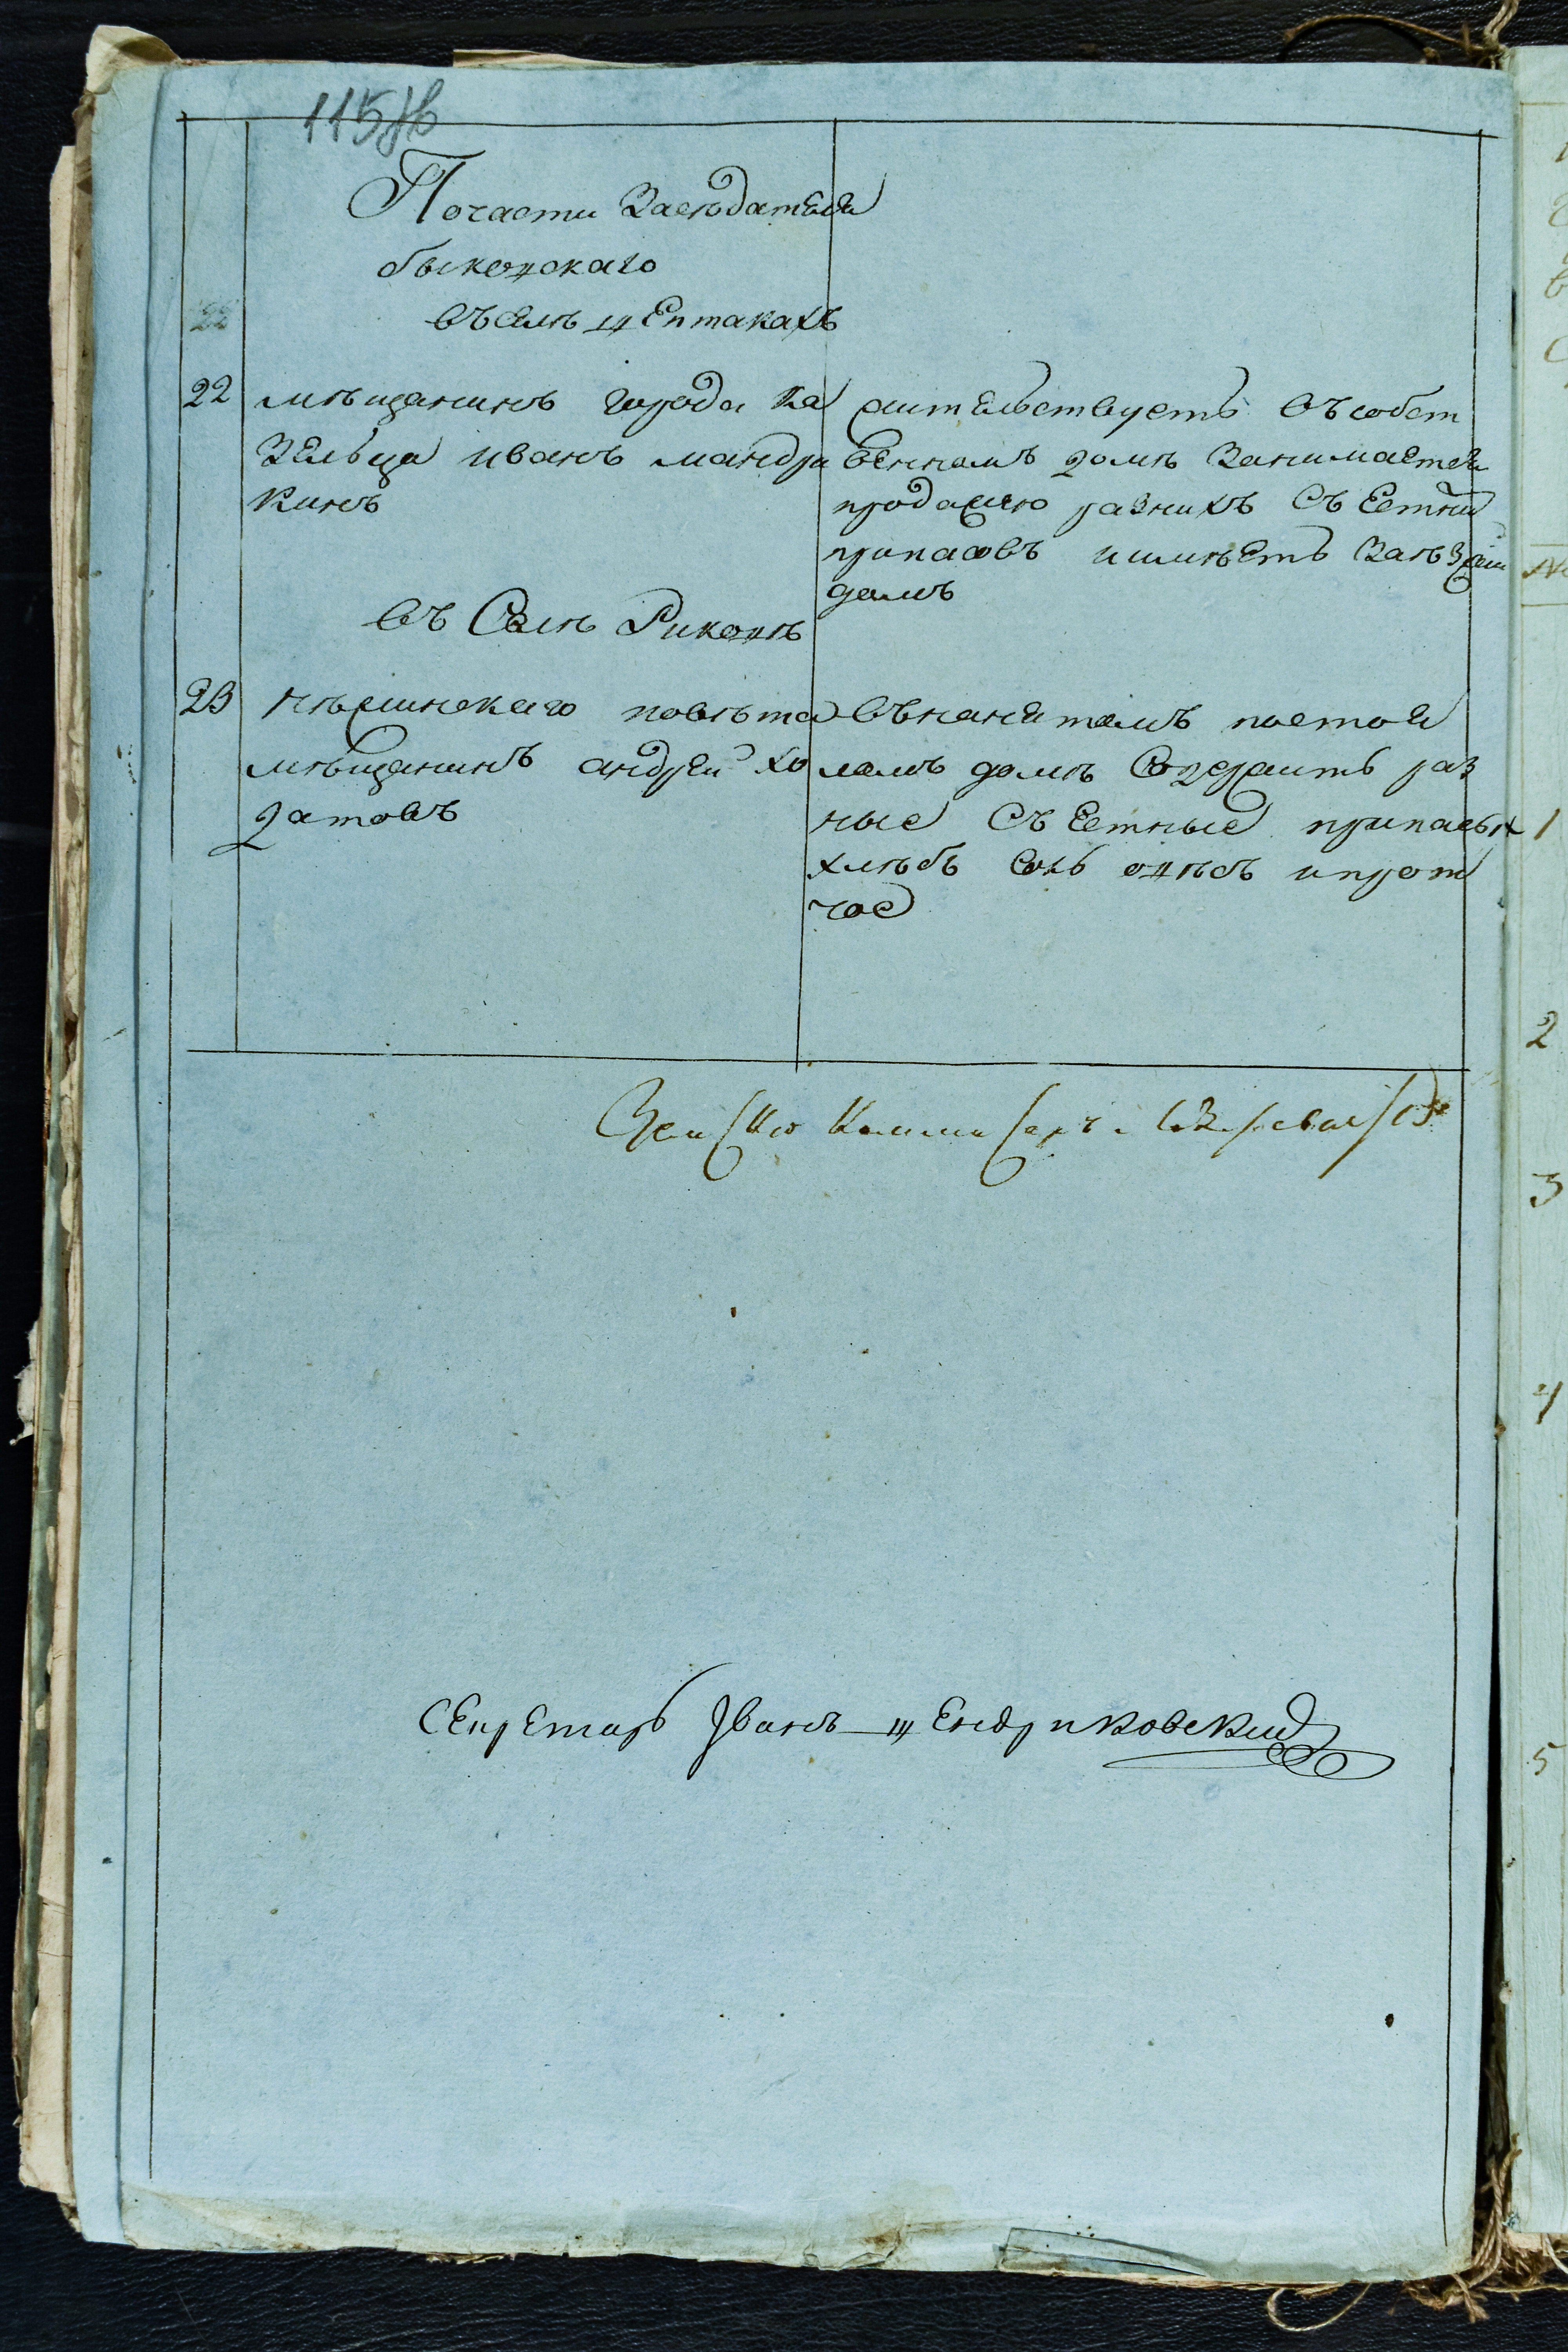 115 Ав
Почасти Заседателя
быковскаго
въ селѣ Щептаках
22
22 мѣщанинъ города Ко
зельца иванъ мандри
кинъ
жительствуетъ въ собст
венномъ домѣ занимается
продажею разнихъ съестни
припасовъ и имѣетъ заѣзжи
домъ
въ Селѣ Риконѣ
23 нѣжинскаго повѣта
мѣщанинъ андрей хо
датовъ
внанятомъ постоя
ломъ домѣ содержитъ раз
ные съестные припасы
хлѣбъ соль овѣсъ и прот
чое
Земски Коммисаръ
Секретарь Иванъ Щендриковский
1
2
3
4
5